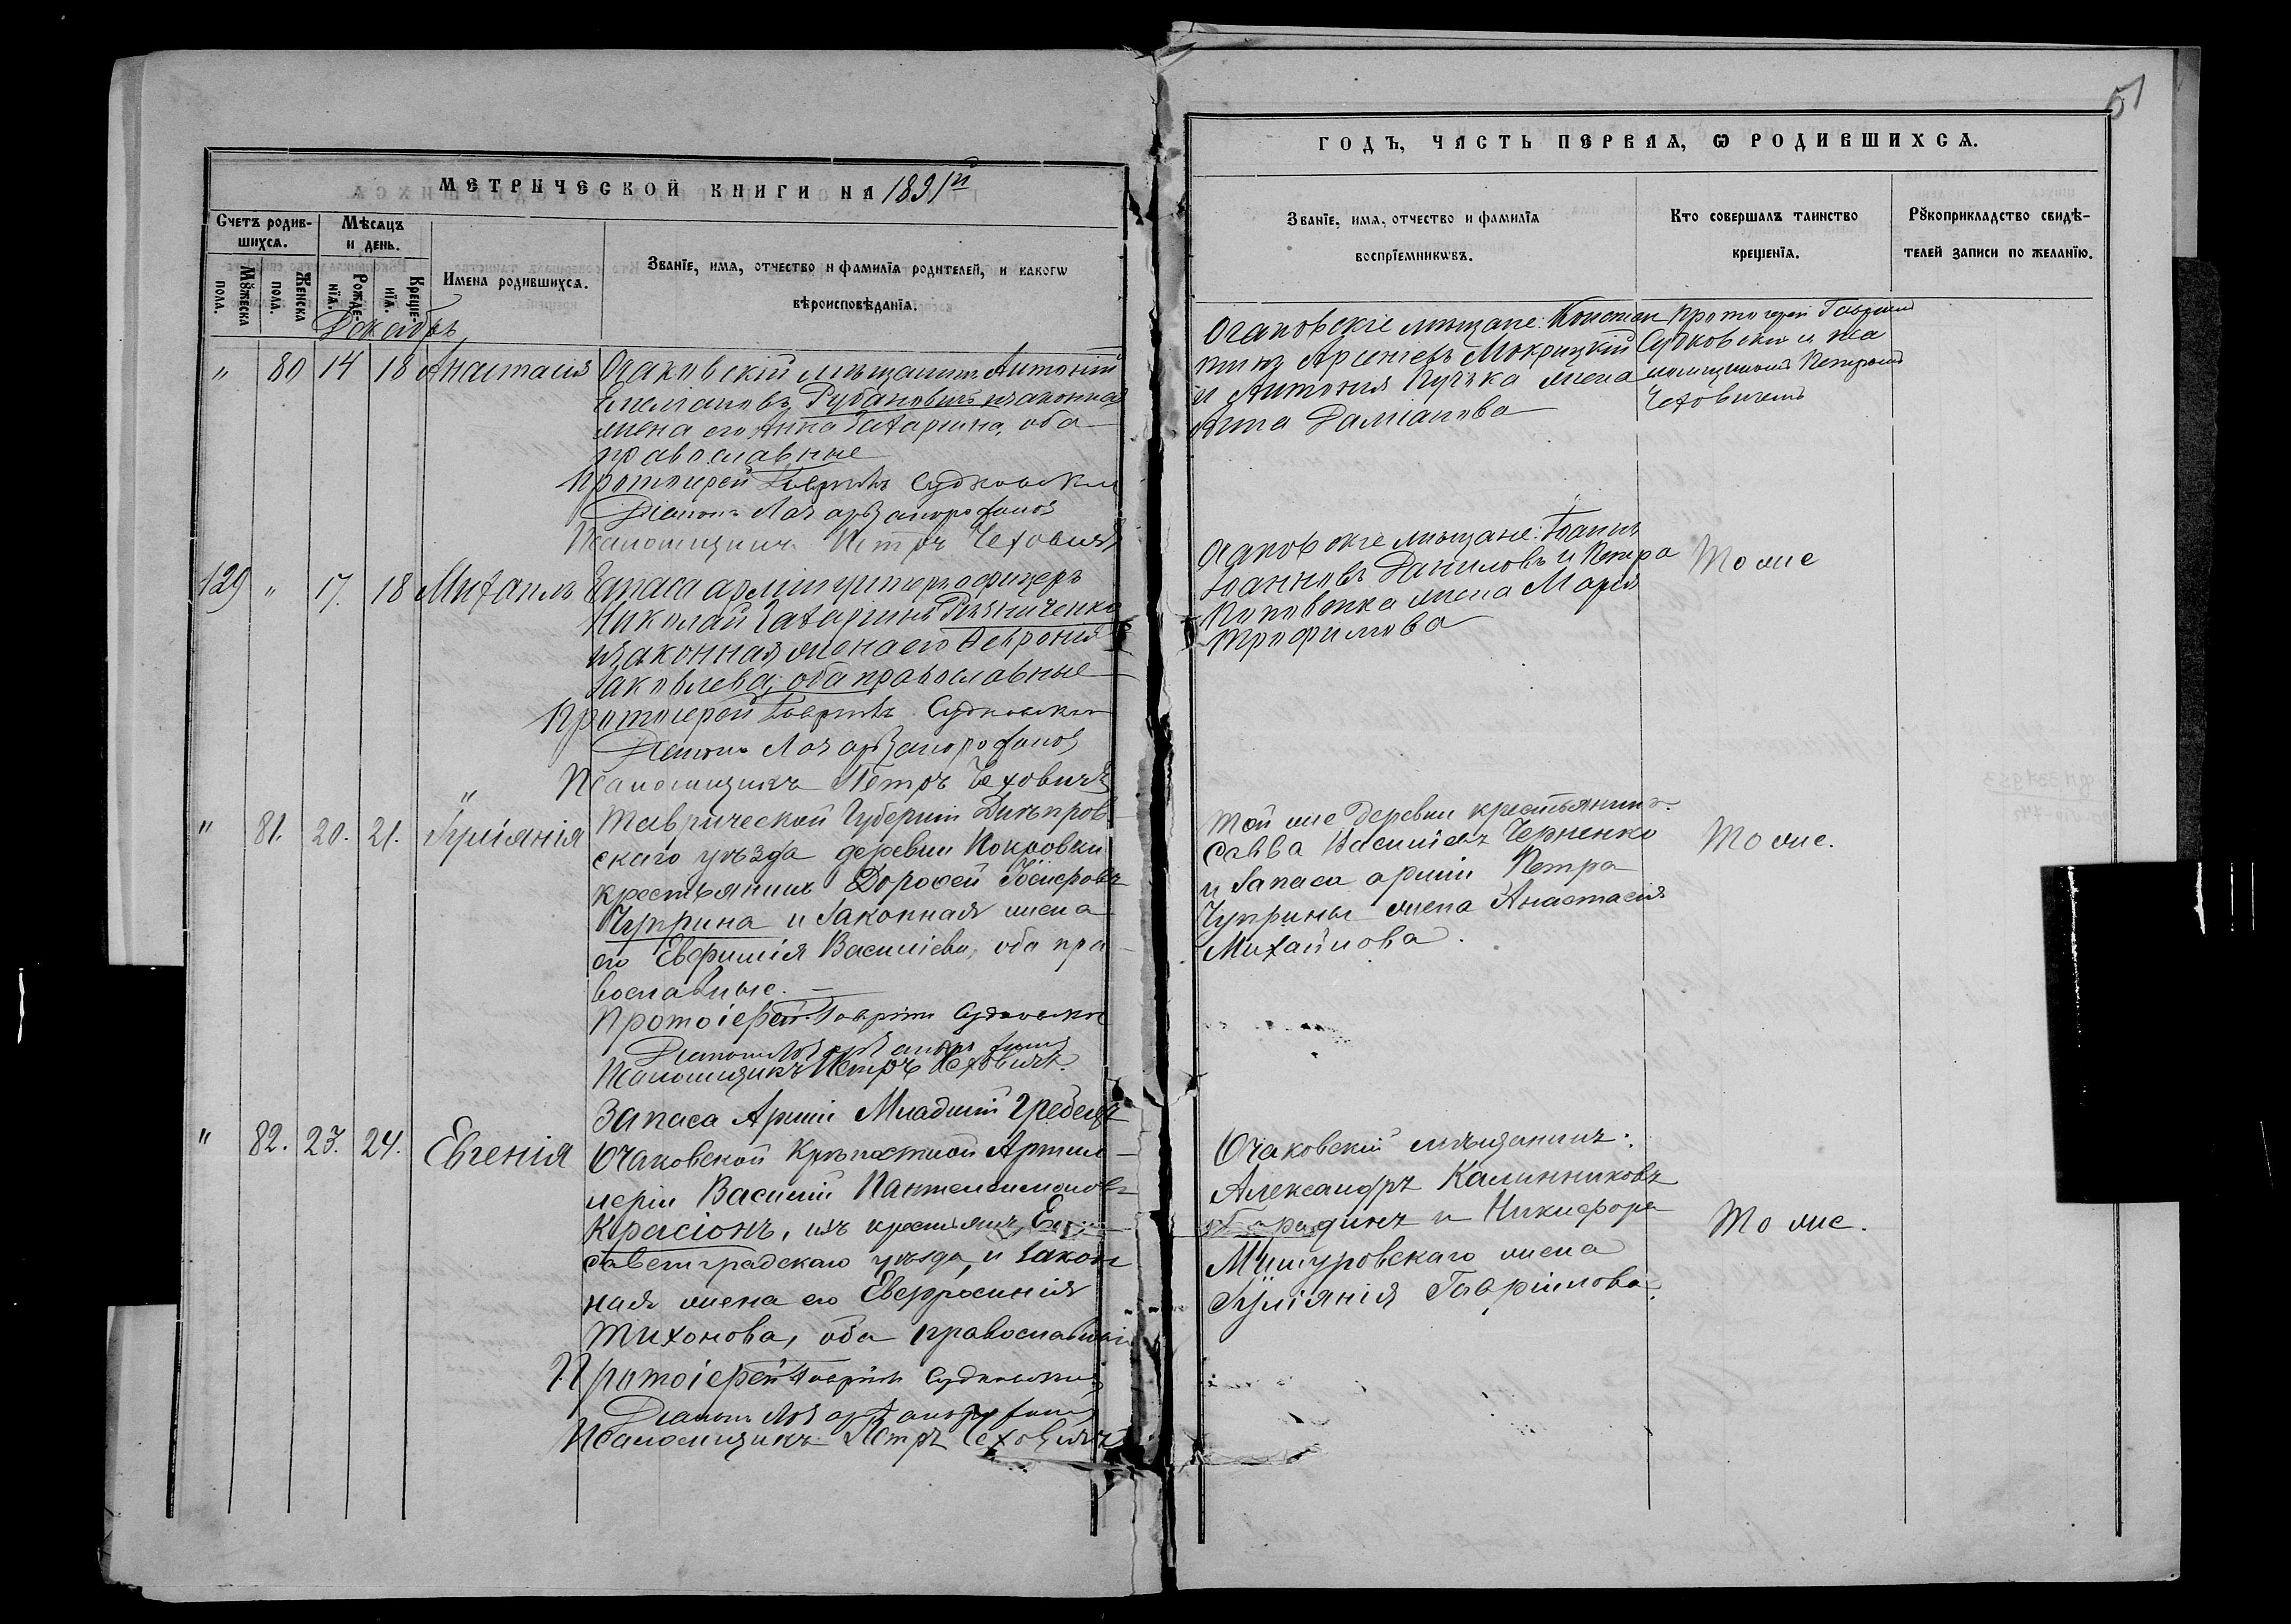 МЕТРИЧЕСКОЙ КНИГИ НА 1891й
Счетъ родив-
шихся.
Мѣсяцъ
и день.
Имена родившихся.
Званіе, имя, отчество и фамилія родителей, и какогѡ
вѣроисповѣданія.
Мужеска
пола.
Женска
пола.
Рожде-
нія.
Креще-
нія.
Декабрь
" 80 14 18 Анастасія
Очаковскій мѣщанинъ Антоній
Емеліановъ Рубановичъ и законная
жена его Анна Захаріина, оба
православные
Протоіерей Гавріилъ Судковскій
Діаконъ Лазарь
Псаломщикъ Петръ Чеховичъ
129 " 17. 18 Михаилъ
Запаса арміи унтеръ офицеръ
Николай Захаріинъ
и законная жена его Феѵронія
Іаковлева, оба православные
Протоіерей Гавріилъ Судковскій
Діаконъ Лазарь
Псаломщикъ Петръ Чеховичъ
" 81. 20. 21. Іуліанія
Таврической Губерніи Днѣпров-
скаго уѣзда деревни Покровки
крестьянинъ Дороѳей Іосифовъ
Чуприна и законная жена
его Евфимія Василіева, оба пра-
вославные.
Протоіерей Гавріилъ Судковскій
Діаконъ Лазарь
Псаломщикъ Петръ Чеховичъ.
" 82. 23. 24. Евгенія
Запаса Арміи Младшій
Очаковской Крѣпостной Артил-
леріи Василій Пантелеимоновъ
Красіонъ, изъ крестьянъ
саветградскаго уѣзда, и закон
ная жена его Евфросинія
Тихонова, оба православные
Протоіерей Гавріилъ Судковскій
Діаконъ Лазарь
Псаломщикъ Петръ Чеховичъ
51
ГОДЪ, ЧАСТЬ ПЕРВАЯ, Ѡ РОДИВШИХСЯ.
Званіе, имя, отчество и фамилія
воспріемникѡвъ.
Кто совершалъ таинство
крещенія.
Рукоприкладство свидѣ-
телей записи по желанію.
Очаковскіе мѣщане: Констан
тинъ Арсеніевъ Мокрицкій
и Антонія жена
Даміанова
Протоіерей Гавріилъ
Судковскій и пса
ломщикомъ Петромъ
Чеховичемъ
Очаковскіе мѣщане: Іоаннъ
Іоанновъ Даниловъ и Петра
жена Марія
Трофимова
Тоже
Той же деревни крестьянинъ
Савва Василіевъ Черненко
и запаса арміи Петра
Чуприны жена Анастасія
Михайлова.
Тоже.
Очаковскій мѣщанинъ:
Александръ Калинниковъ
и Никифора
жена
Іуліанія Гавріилова.
Тоже.